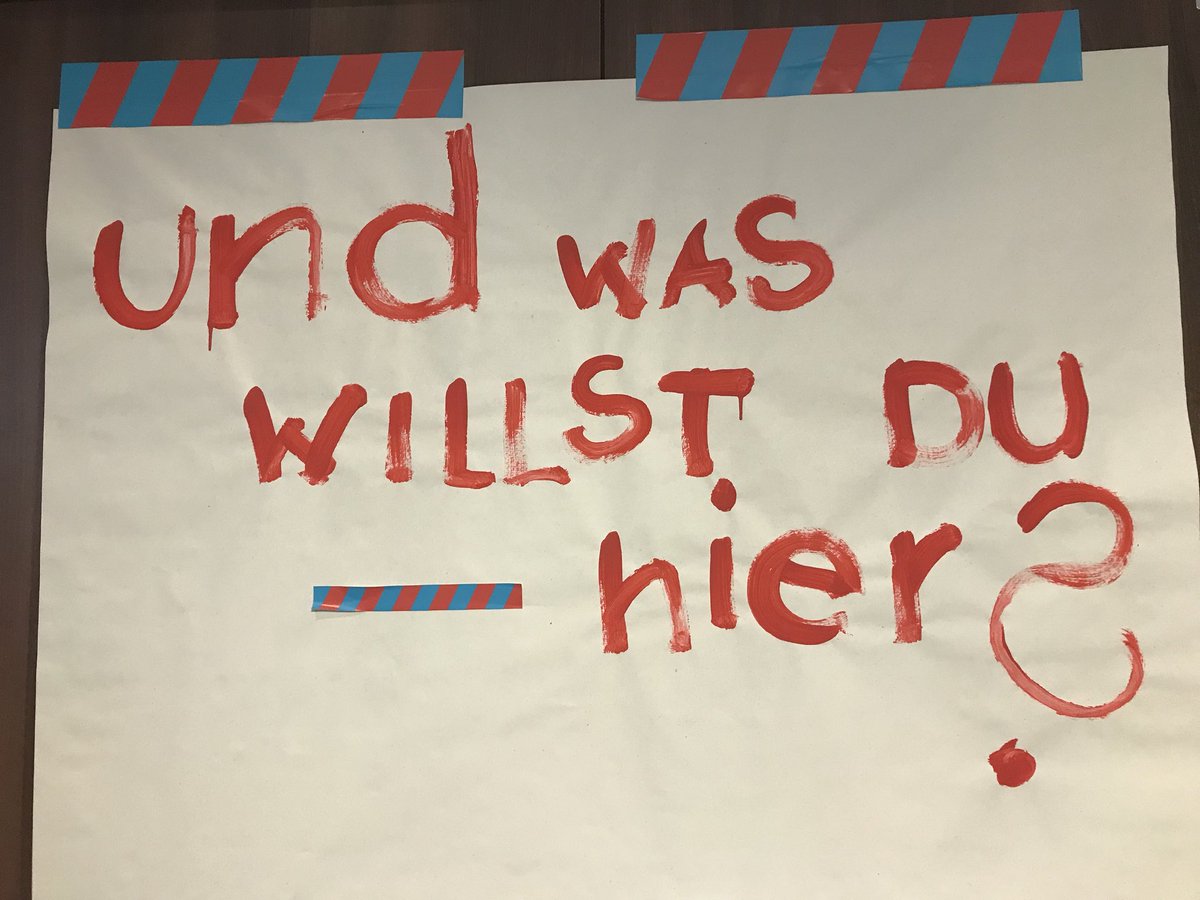 und WAS
WILLST DU
hier?